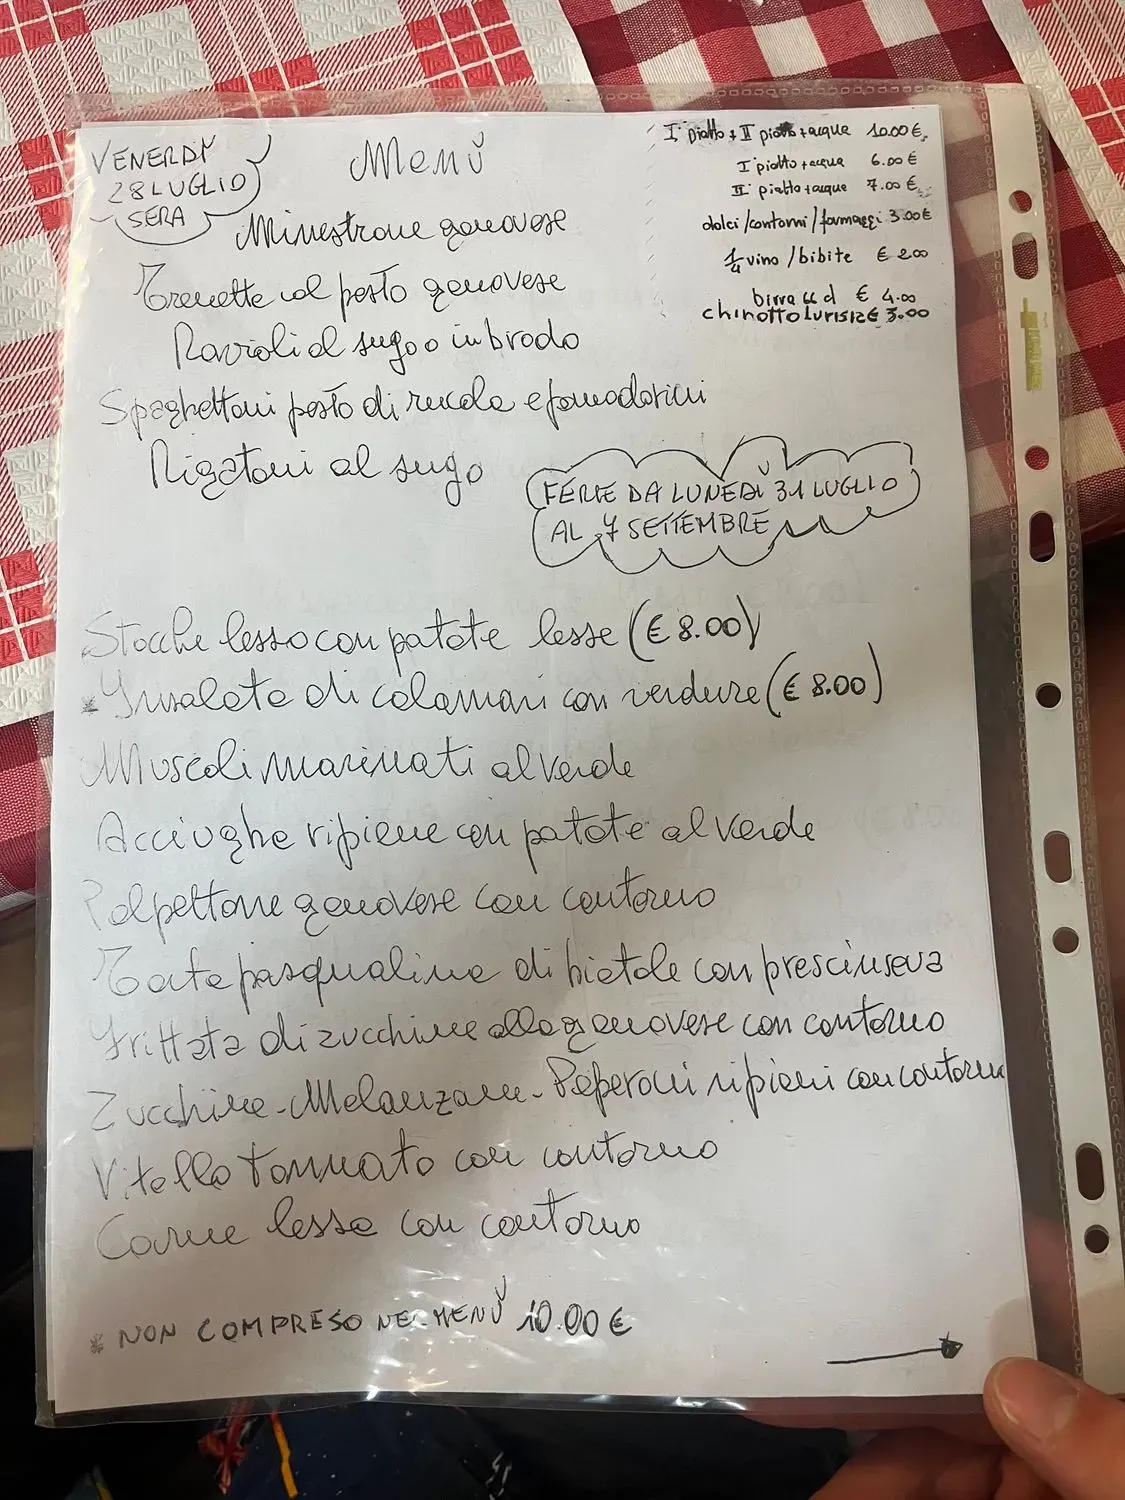 VENERDÌ
28 LUGLIO
SERA
Menù
I° piatto + II piatto + acqua 10.00 €
I° piatto + acqua 6.00 €
II° piatto + acqua 7.00 €
dolci / contorni / formaggi 3.00 €
1/4 vino / bibite € 2.00
birra € 4.00
chinotto lurisia € 3.00
Minestrone genovese
Trenette col pesto genovese
Ravioli al sugo o in brodo
Spaghettoni pesto di rucola e pomodorini
Rigatoni al sugo
FERIE DA LUNEDÌ 31 LUGLIO
AL 7 SETTEMBRE
Stocche lesso con patate lesse (€ 8.00)
* Insalata di calamari con verdure (€ 8.00)
Muscoli marinati al verde
Acciughe ripiene con patate al verde
Polpettone genovese con contorno
Torta pasqualina di bietole con prescinseva
Frittata di zucchine alla genovese con contorno
Zucchine - Melanzane - Peperoni ripieni con contorno
Vitello tonnato con contorno
Carne lessa con contorno
* NON COMPRESO NEL MENÙ 10.00 €